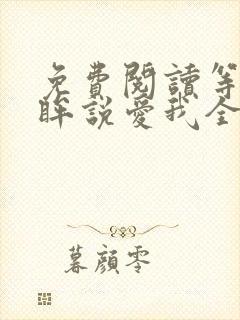 免費閱讀等
眸說愛我全
暮顔零